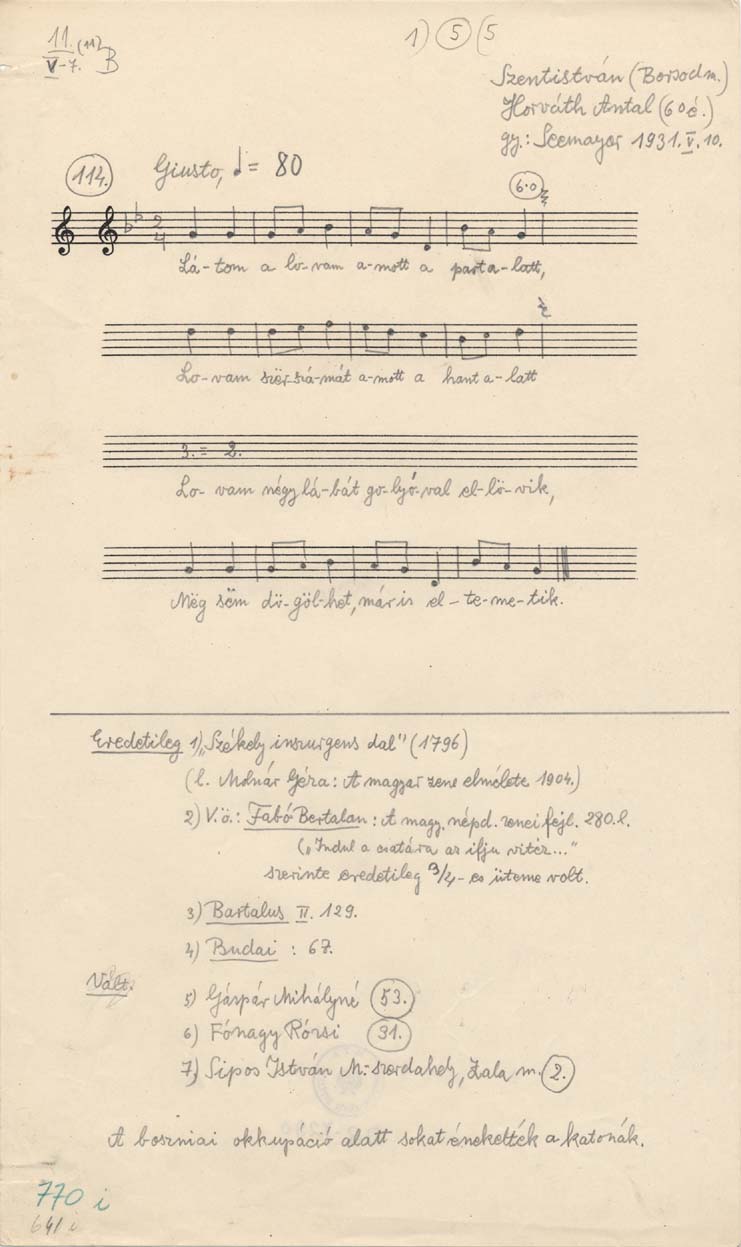 11. (11) B
V-7.
1) 5 (5
Szentistván (Borsod m.)
Horváth Antal (60é.)
gy.: Seemayer 1931. V. 10.
114.
Giusto, ♩= 80
6.0
2/4
Lá-tom a lo-vam a-mott a part a-latt,
Lo-vam szër-szá-mát a-mott a hant a-latt
3. = 2.
Lo-vam négy lá-bát go-lyó-val el-lö-vik,
Még sëm dö-göl-het, már is el-te-me-tik.
Eredetileg 1) „Székely inszurgens dal" (1796)
(l. Molnár Géza: A magyar zene elmélete 1904.)
2) V.ö.: Fabó Bertalan: A magy. népd. zenei fejl. 280.l.
(„Indul a csatára az ifju vitéz..."
szerinte eredetileg 3/4-es üteme volt.
3) Bartalus II. 129.
4) Budai : 67.
Vált.
5) Gáspár Mihályné 53.
6) Fónagy Rózsi 31.
7) Sipos István M.-szerdahely, Zala m. 2.
A boszniai okkupáció alatt sokat énekelték a katonák.
770 i
641 i